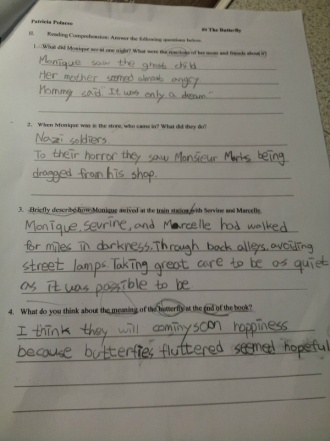 Patricia Polacco
#4 The Butterfly
II. Reading Comprehension: Answer the following questions below.
1. What did Monique see at one night? What were the reactions of her mom and friends about it?
Monique saw the ghost child
Her mother seemed almost angry
Mommy said It was only a dream"
2. When Monique was in the store, who came in? What did they do?
Nazi soldiers
To their horror they saw Monsieur Marks being
dragged from his shop.
3. Briefly describe how Monique arrived at the train station with Sevrine and Marcelle.
Monique, Sevrine, and Marcelle had walked
for miles in darkness. Through back alleys, avoiding
street lamps. Taking great care to be as quiet
as it was possible to be
4. What do you think about the meaning of the butterfly at the end of the book?
I think they will coming soon happiness
because butterfies fluttered seemed hopeful